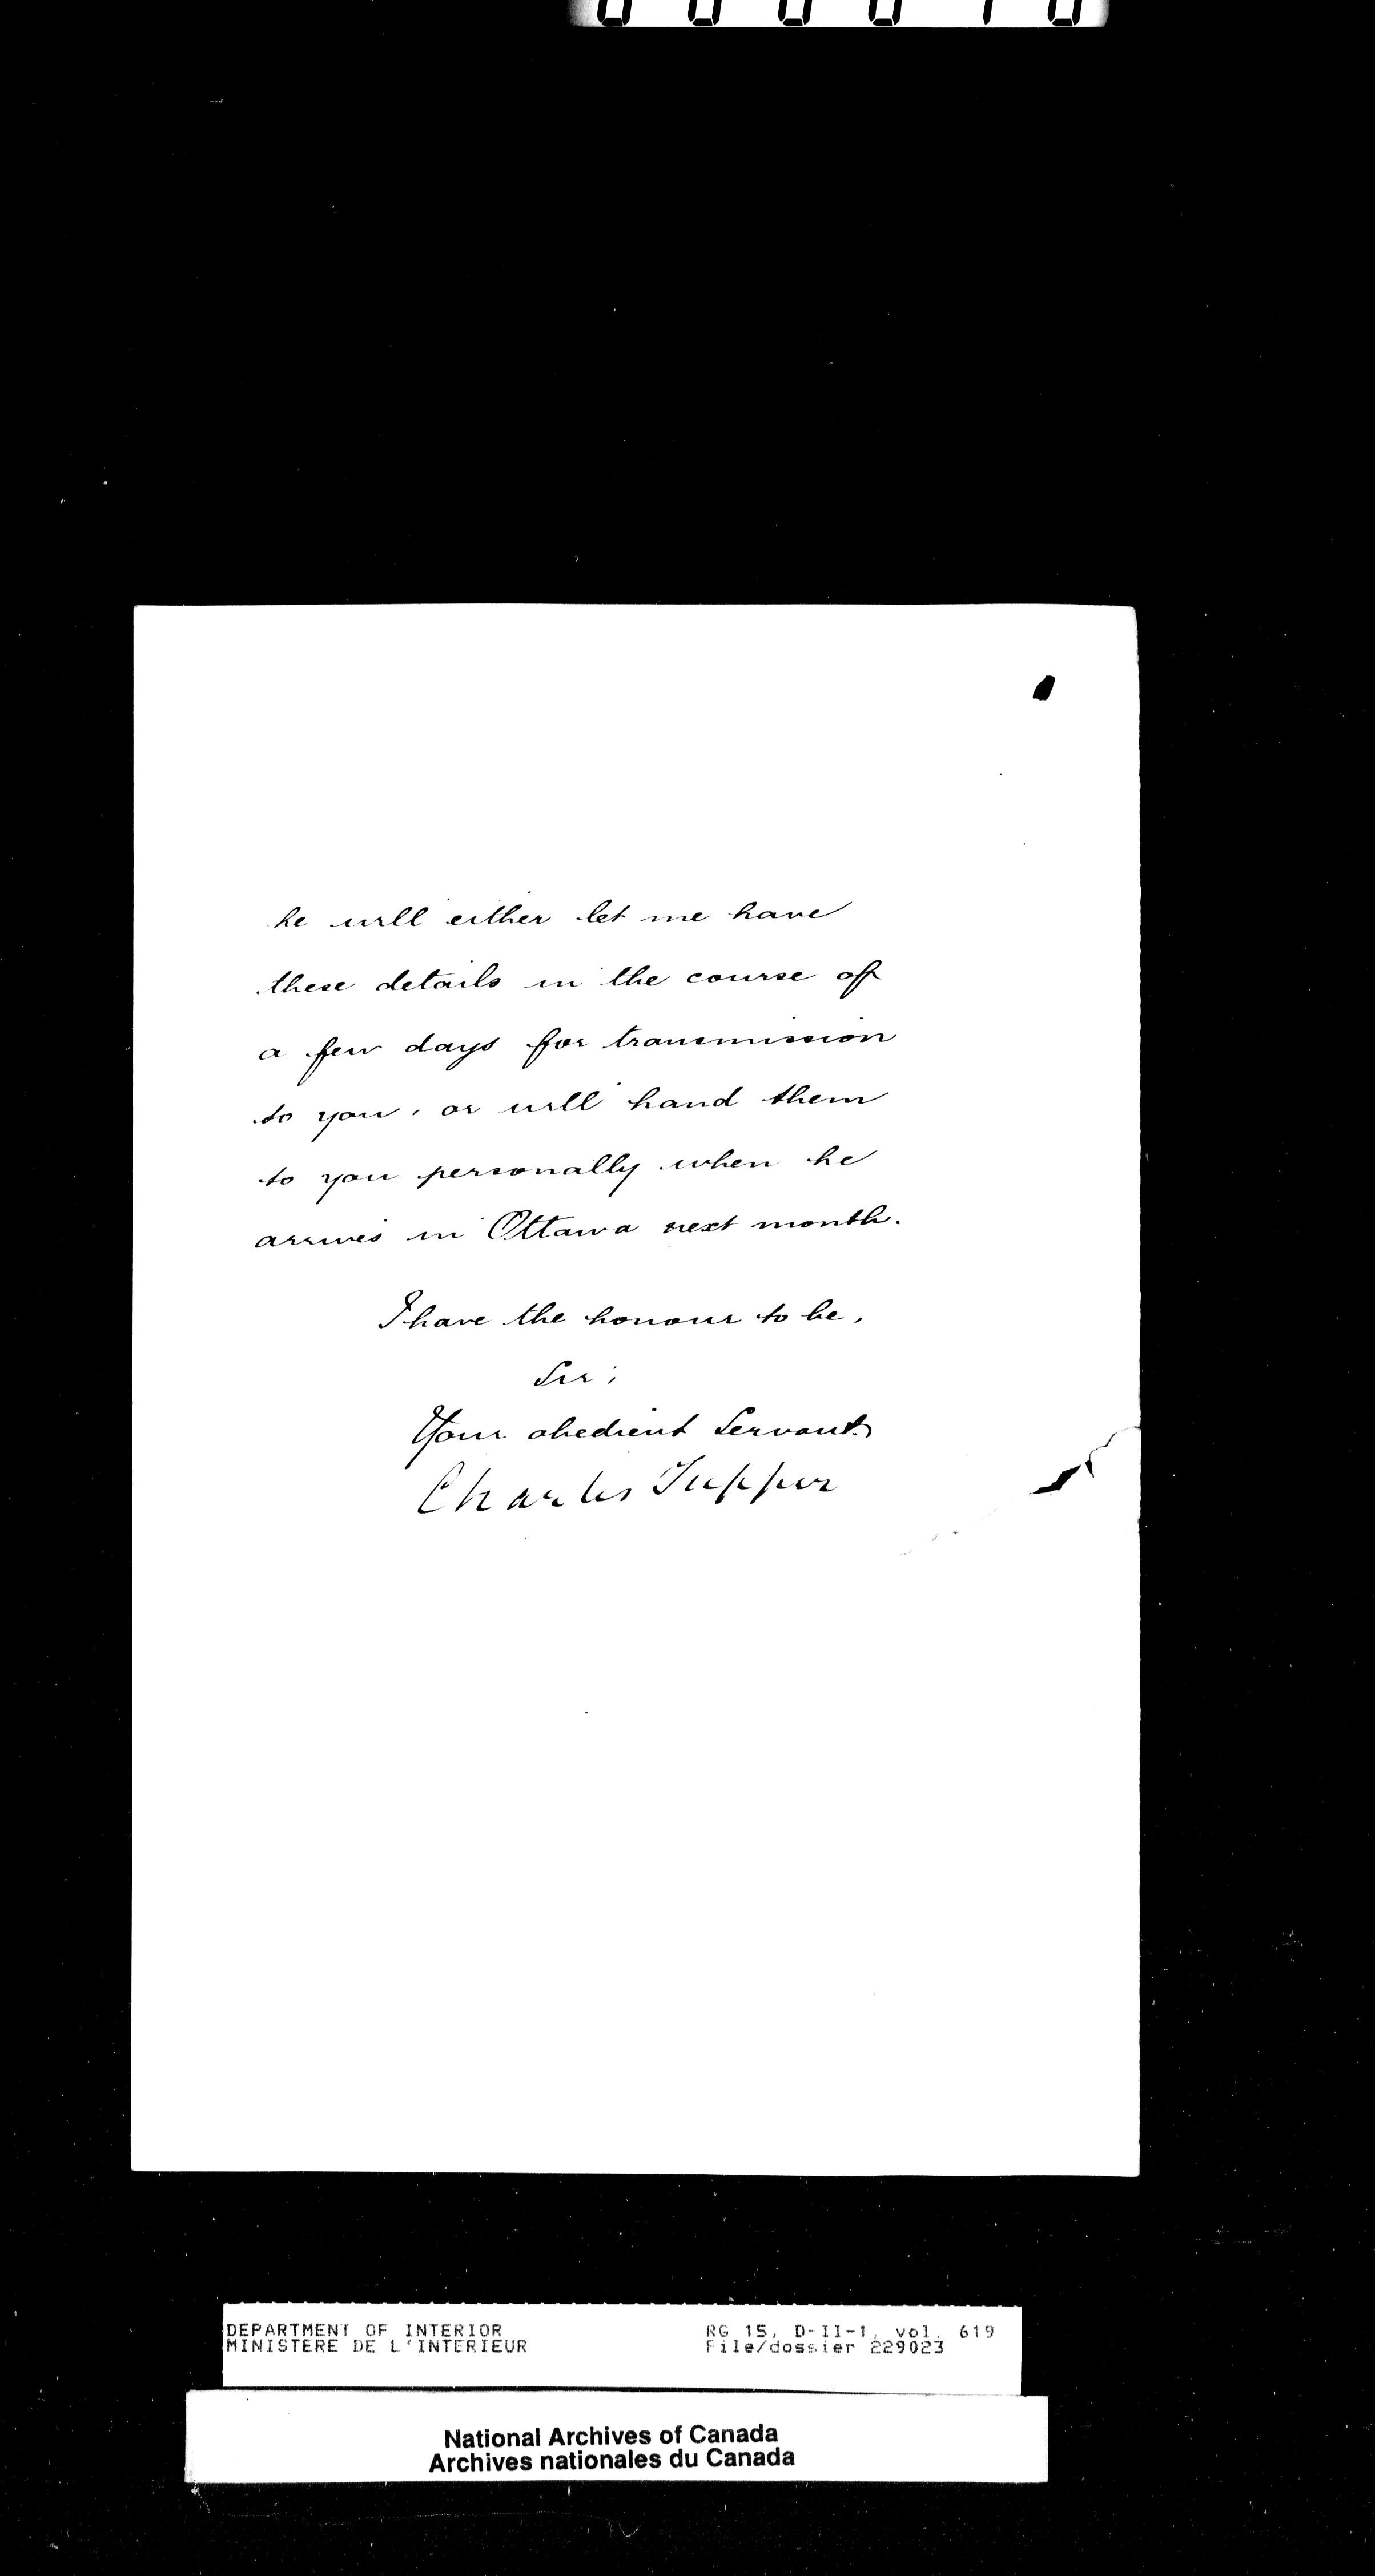 he will either let me have
these details in the course of
a few days for transmission
to you, or will hand them
to you personally when he
arrives in Ottawa next month.
I have the honour to be,
Sir,
Your obedient Servant
Charles Tupper
DEPARTMENT OF INTERIOR
MINISTERE DE L'INTERIEUR
RG 15, D-II-1, vol. 619
File/dossier 229023
National Archives of Canada
Archives nationales du Canada